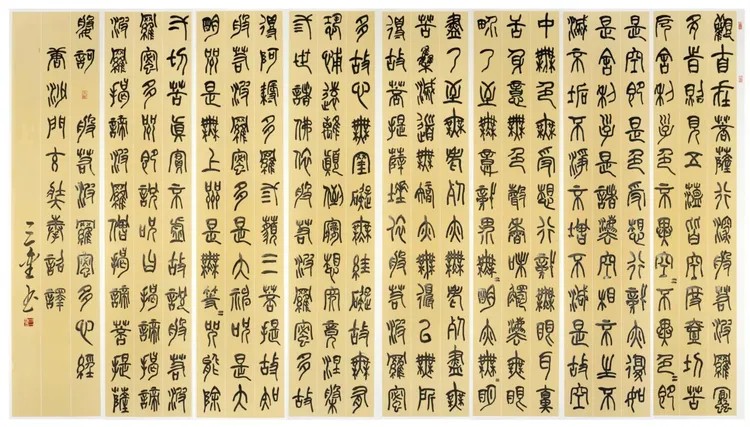 觀自在菩薩行深般若波羅蜜
多時照見五蘊皆空度一切苦
厄舍利子色不異空〻不異色〻即
是空〻即是色受想行識亦復如
是舍利子是諸法空相不生不
滅不垢不淨不增不減是故空
中無色無受想行識無眼耳鼻
舌身意無色聲香味觸法無眼
界乃至無意識界無〻明亦無〻明
盡乃至無老死亦無老死盡無
苦集滅道無智亦無得以無所
得故菩提薩埵依般若波羅蜜
多故心無罣礙無罣礙故無有
恐怖遠離顛倒夢想究竟涅槃
三世諸佛依般若波羅蜜多故
得阿耨多羅三藐三菩提故知
般若波羅蜜多是大神咒是大
明咒是無上咒是無等〻咒能除
一切苦真實不虛故說般若波
羅蜜多咒即說咒曰揭諦揭諦
波羅揭諦波羅僧揭諦菩提薩
婆訶 般若波羅蜜多心經
唐沙門玄奘奉詔譯